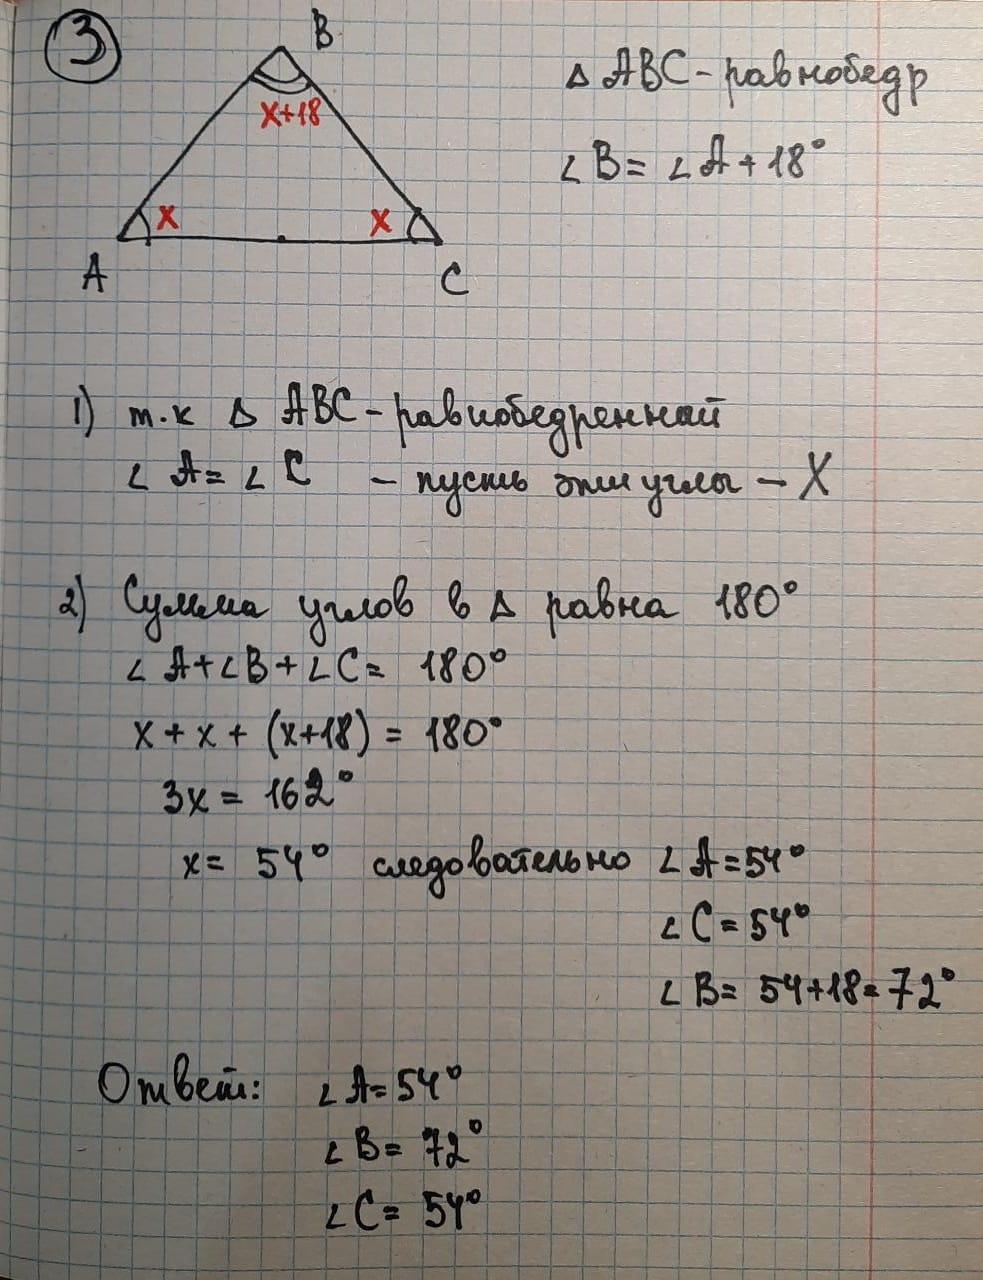 3
B
x+18
x
x
A
C
Δ ABC - равнобедр
∠B = ∠A + 18°
1) т.к Δ ABC - равнобедренный
∠A = ∠C - пусть эти углы - X
2) Сумма углов в Δ равна 180°
∠A + ∠B + ∠C = 180°
x + x + (x+18) = 180°
3x = 162°
x = 54° следовательно ∠A = 54°
∠C = 54°
∠B = 54+18 = 72°
Ответ: ∠A = 54°
∠B = 72°
∠C = 54°